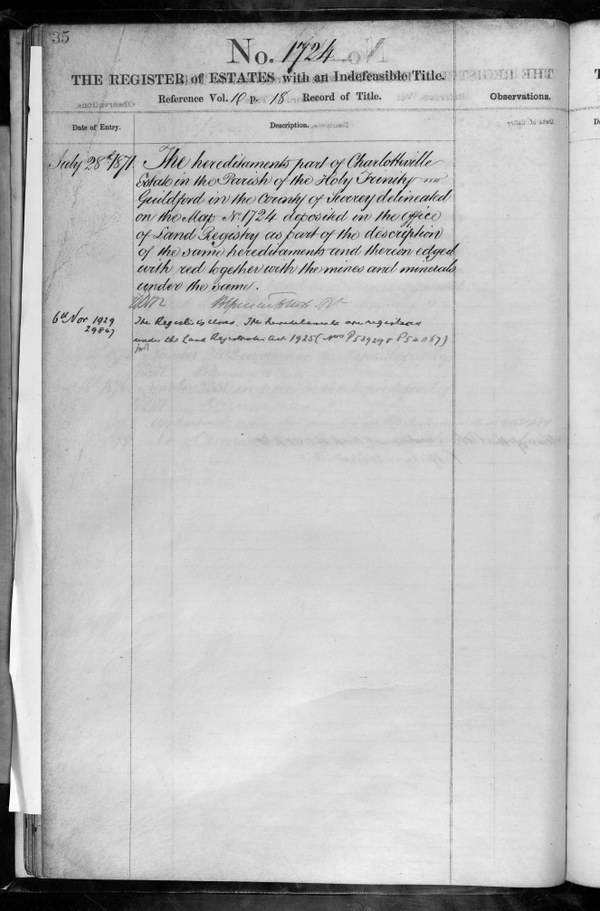 35
No. 1724
THE REGISTER of ESTATES with an Indefeasible Title.
Reference Vol. 10 p. 18 Record of Title.
Observations.
Date of Entry.
Description.
July 28th 1871. The hereditaments part of Charlotteville
Estate in the Parish of the Holy Trinity in
Guildford in the County of Surrey delineated
on the Map No 1724 deposited in the Office
of Land Registry as part of the description
of the same hereditaments and thereon edged
with red together with the mines and minerals
under the same.
6th Nov 1929 The Register is closed. The hereditaments are registered
29847 under the Land Registration Act 1925 (Nos P539298 P54067)